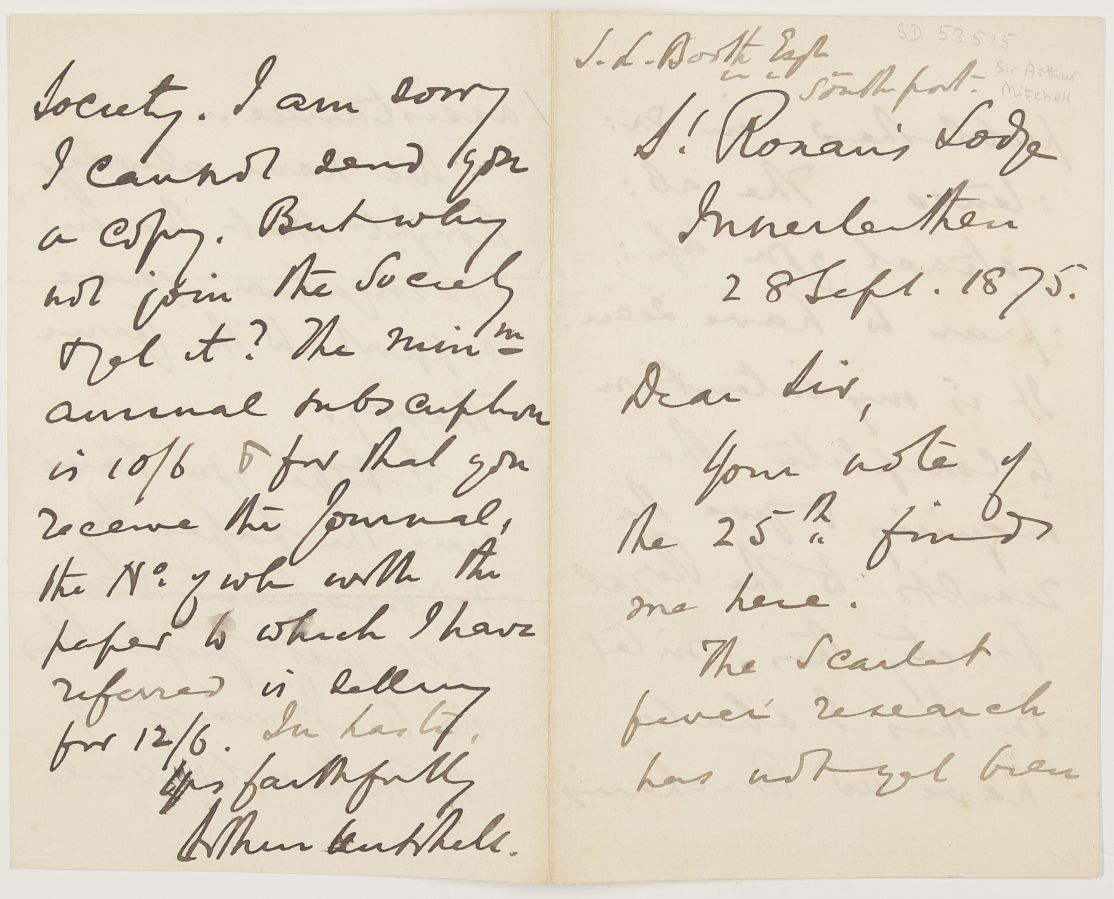 SD 53515
Sir Arthur
Mitchell
J. L. Booth Esqr
Southport.
St Ronan's Lodge
Innerleithen
28 Sept. 1875.
Dear Sir,
Your note of
the 25th finds
me here.
The Scarlet
fever research
has not yet been
Society. I am sorry
I cannot send you
a copy. But why
not join the Society
& get it? The minm
annual subscription
is 10/6 & for that you
receive the Journal,
the No. of wh with the
paper to which I have
referred is selling
for 12/6. In haste,
Yrs faithfully
Arthur Mitchell.